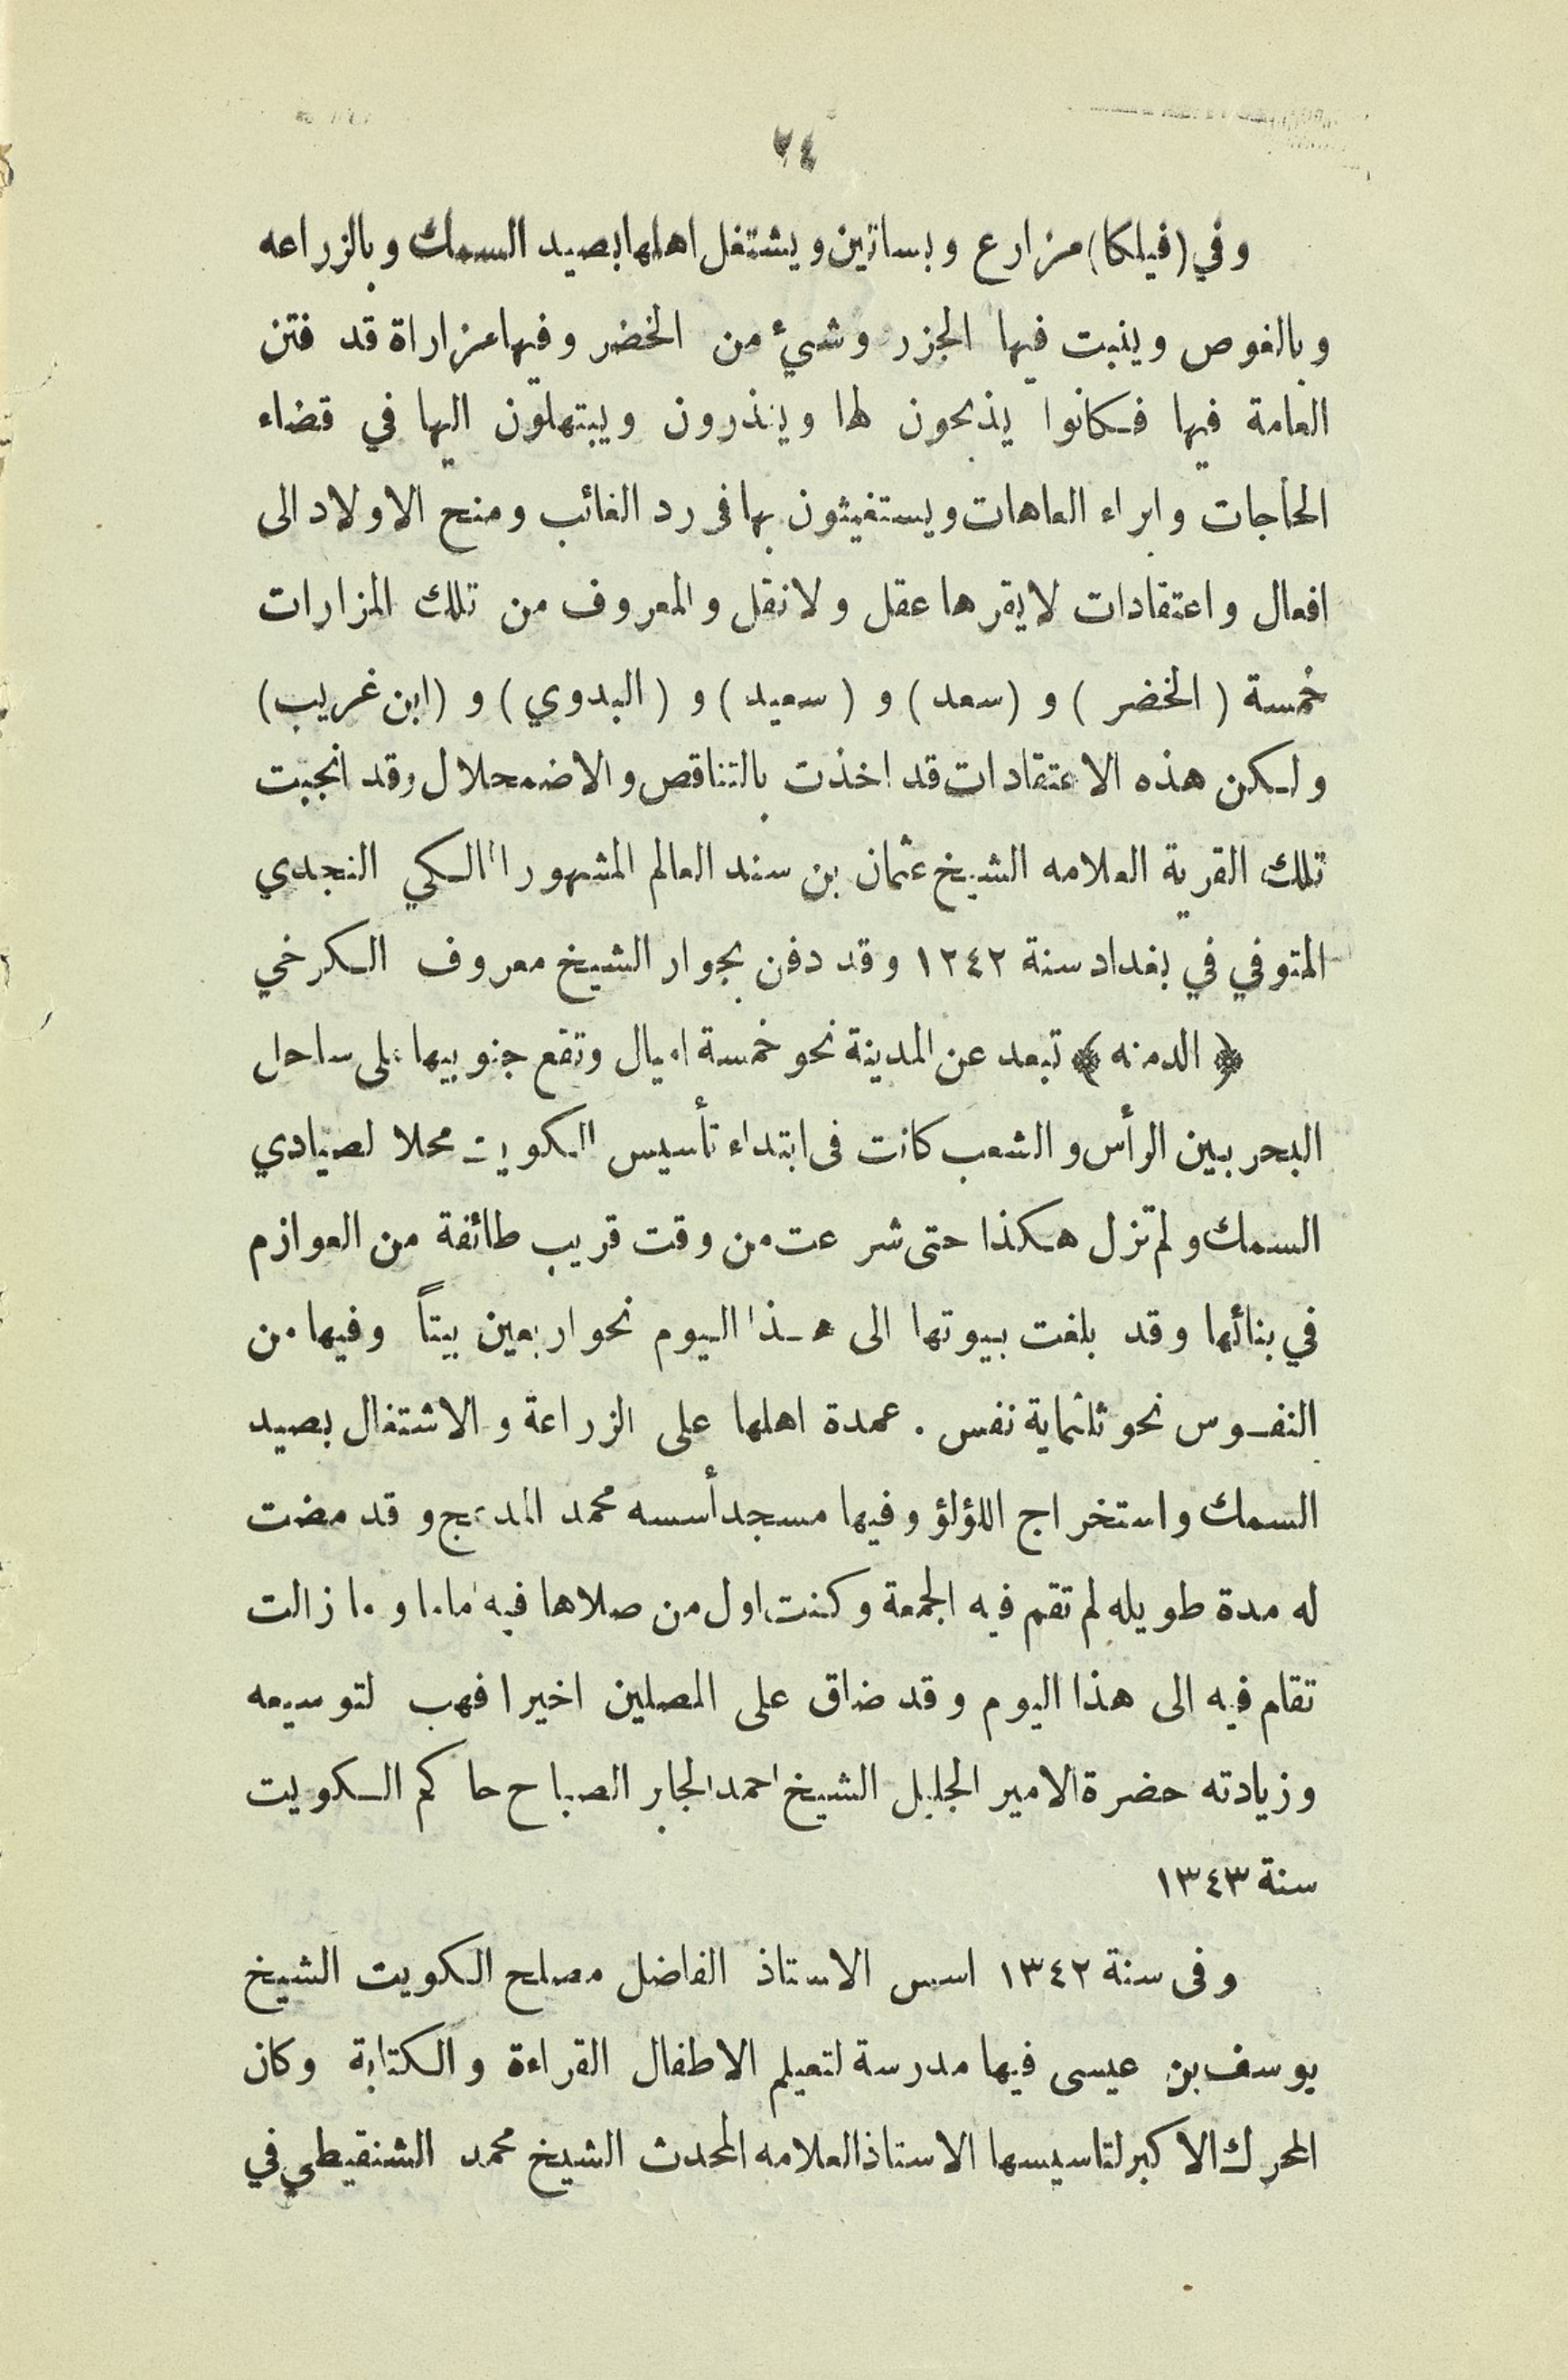 ٢٤
وفي (فيلكا) مزارع وبساتين ويشتغل اهلها بصيد السمك وبالزراعه
وبالغوص وينبت فيها الجزر وشيئ من الخضر وفيها مزاراة قد فتن
العامة فيها فكانوا يذبحون لها وينذرون ويبتهلون اليها في قضاء
الحاجات وابراء العاهات ويستغيثون بها فى رد الغائب ومنح الاولاد الى
افعال واعتقادات لايقرها عقل ولا نقل والمعروف من تلك المزارات
خمسة ( الخضر ) و ( سعد ) و ( سعيد ) و ( البدوي ) و ( ابن غريب )
ولكن هذه الاعتقادات قد اخذت بالتناقص والاضمحلال وقد انجبت
تلك القرية العلامه الشيخ عثمان بن سند العالم المشهور المالكي النجدي
المتوفي في بغداد سنة ١٢٤٢ وقد دفن بجوار الشيخ معروف الكرخي
﴿ الدمنه ﴾ تبعد عن المدينة نحو خمسة اميال وتقع جنوبيها على ساحل
البحر بين الرأس والشعب كانت فى ابتداء تأسيس الكويت محلا لصيادي
السمك ولم تزل هكذا حتى شرعت من وقت قريب طائفة من العوازم
في بنائها وقد بلغت بيوتها الى هذا اليوم نحو اربعين بيتاً وفيها من
النفوس نحو ثلثماية نفس . عمدة اهلها على الزراعة والاشتغال بصيد
السمك واستخراج اللؤلؤ وفيها مسجد أسسه محمد المدعج وقد مضت
له مدة طويله لم تقم فيه الجمعة وكنت اول من صلاها فيه اماما وما زالت
تقام فيه الى هذا اليوم وقد ضاق على المصلين اخيرا فهب لتوسيعه
وزيادته حضرة الامير الجليل الشيخ احمد الجابر الصباح حاكم الكويت
سنة ١٣٤٣
وفى سنة ١٣٤٢ اسس الاستاذ الفاضل مصلح الكويت الشيخ
يوسف بن عيسى فيها مدرسة لتعيلم الاطفال القراءة والكتابة وكان
المحرك الاكبر لتاسيسها الاستاذ العلامه المحدث الشيخ محمد الشنقيطي في